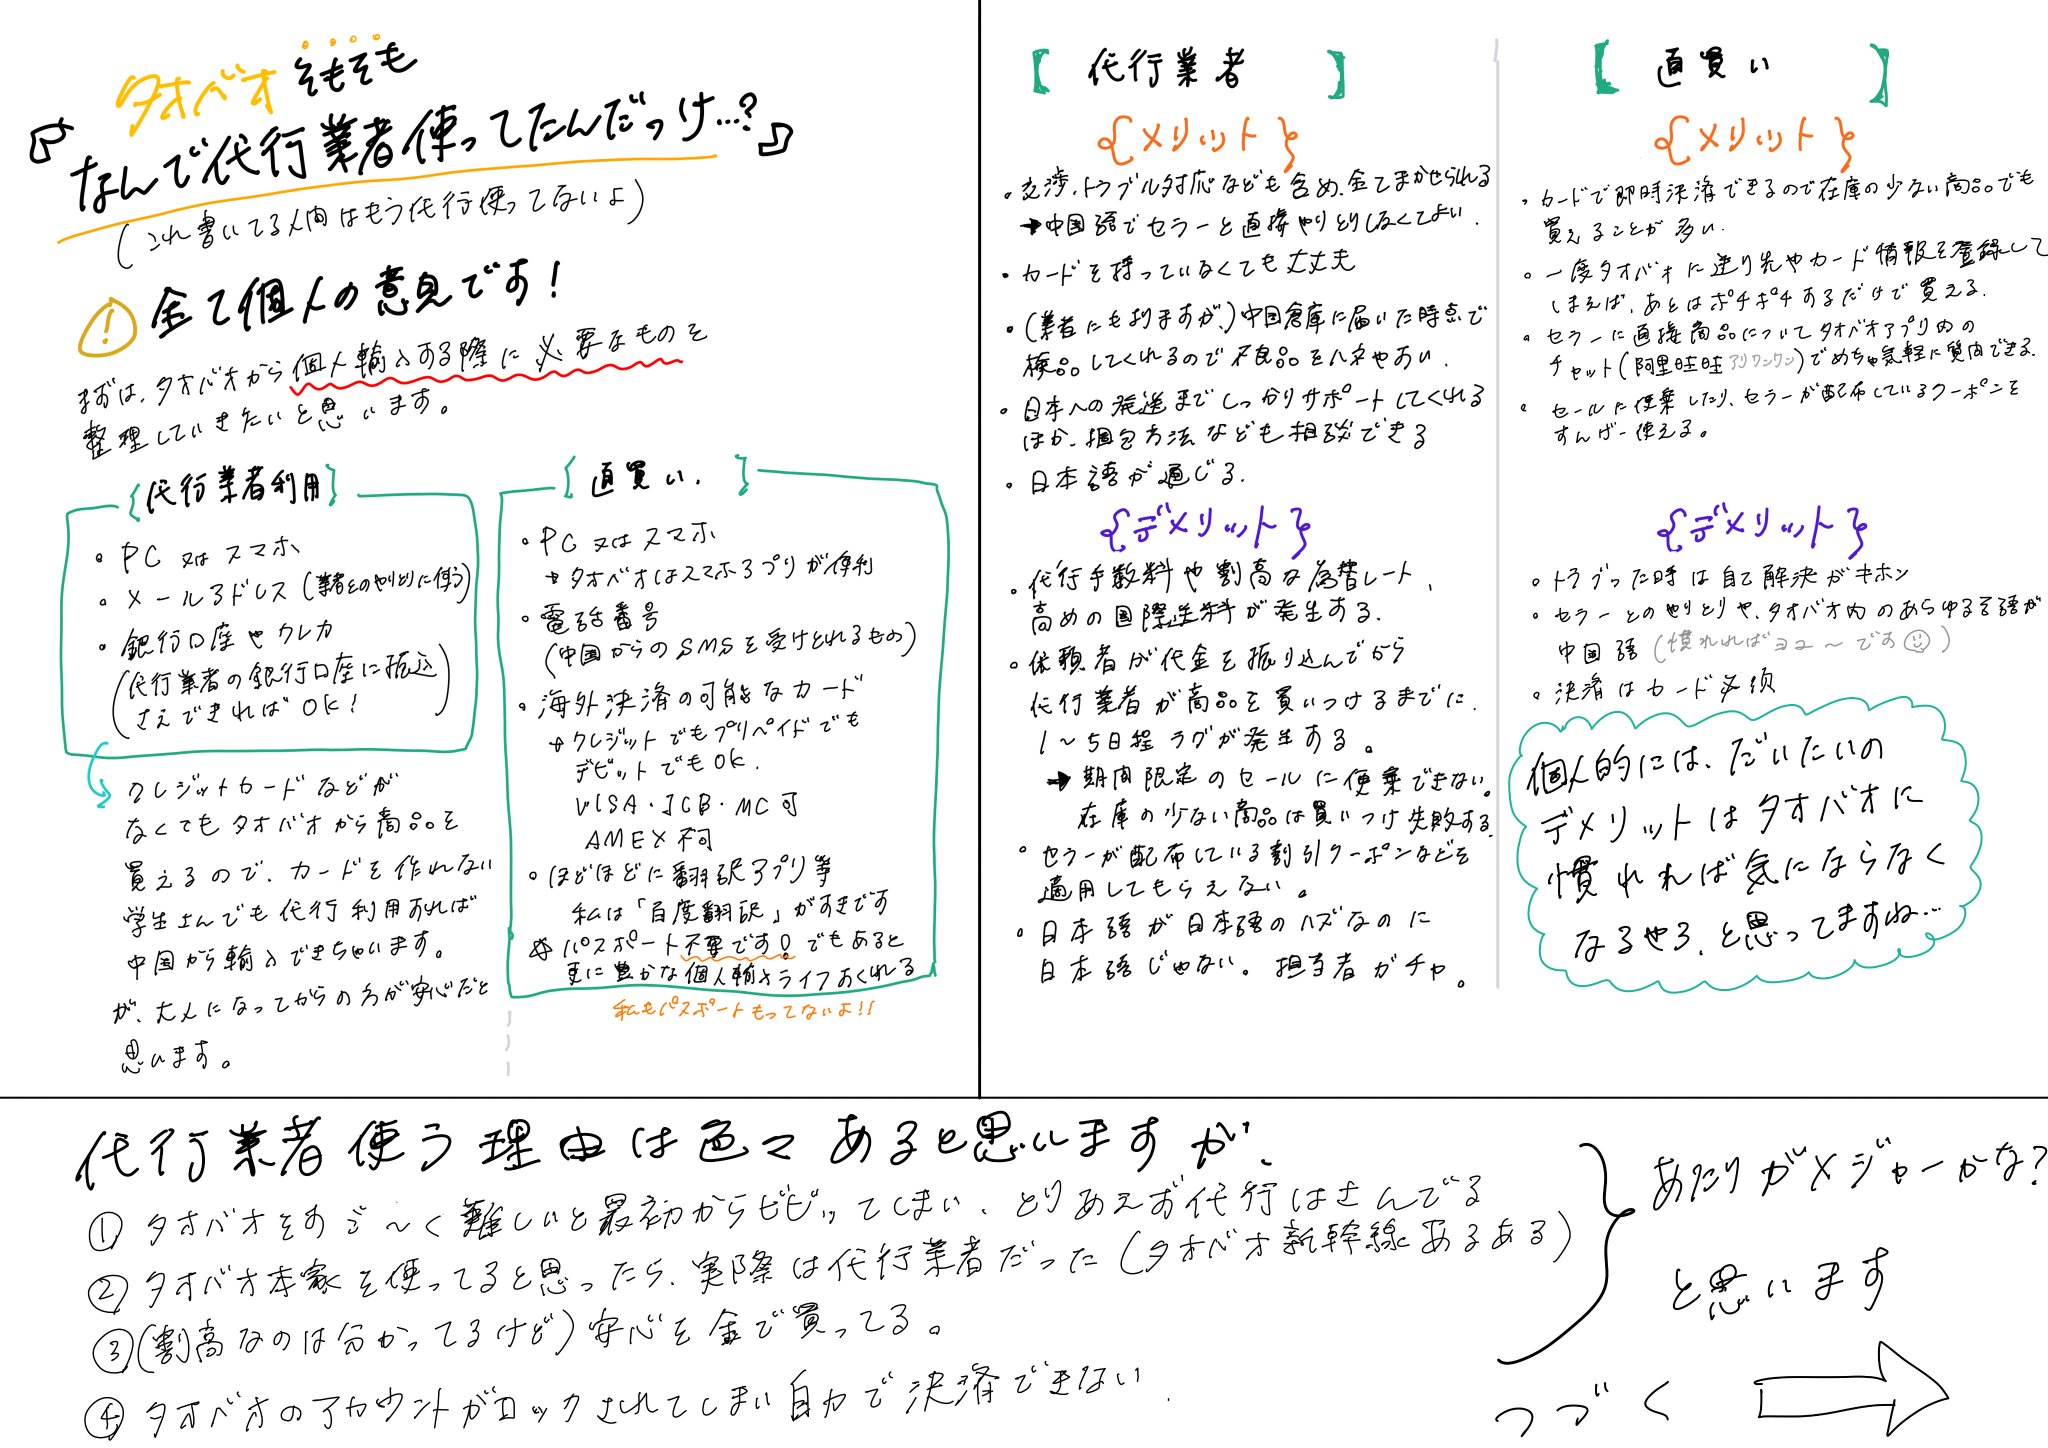 タオバオ そもそも
『なんで代行業者使ってたんだっけ…?』
(これ書いてる人間はもう代行使ってないよ)
! 全て個人の意見です!
まずは、タオバオから個人輸入する際に必要なものを
整理していきたいと思います。
{代行業者利用}
・PC 又はスマホ
・メールアドレス (業者とのやりとりに使う)
・銀行口座やクレカ
(代行業者の銀行口座に振込
さえできれば OK!)
クレジットカードなどが
なくてもタオバオから商品を
買えるので、カードを作れない
学生さんでも代行利用すれば
中国から輸入できちゃいます。
が、大人になってからの方が安心だと
思います。
{直買い.}
・PC 又は スマホ
→タオバオはスマホアプリが便利
・電話番号
(中国からのSMSを受けとれるもの)
・海外決済の可能なカード
→クレジットでもプリペイドでも
デビットでもOK.
VISA・JCB・MC可
AMEX不可
・ほどほどに翻訳アプリ等
私は「百度翻訳」がすきです
パスポート不要です!でもあると
更に豊かな個人輸入ライフおくれる
私もパスポートもってないよ!!
【 代行業者 】
{メリット}
・交渉、トラブル対応なども含め、全てまかせられる
→中国語でセラーと直接やりとりしなくてよい.
・カードを持っていなくても大丈夫
・(業者にもよりますが、)中国倉庫に届いた時点で
検品してくれるので不良品をハネやすい.
・日本への発送までしっかりサポートしてくれる
ほか、梱包方法なども相談できる
・日本語が通じる.
{デメリット}
・代行手数料や割高な為替レート、
高めの国際送料が発生する.
・依頼者が代金を振り込んでから
代行業者が商品を買いつけるまでに、
1〜5日程ラグが発生する。
→期間限定のセールに便乗できない。
在庫の少ない商品は買いつけ失敗する.
・セラーが配布している割引クーポンなどを
適用してもらえない。
・日本語が日本語のハズなのに
日本語じゃない。担当者ガチャ。
【 直買い 】
{メリット}
・カードで即時決済できるので在庫の少ない商品でも
買えることが多い.
・一度タオバオに送り先やカード情報を登録して
しまえば、あとはポチポチするだけで買える.
・セラーに直接商品についてタオバオアプリ内の
チャット(阿里旺旺 アリワンワン)でめちゃ気軽に質問できる.
・セールに便乗したり、セラーが配布しているクーポンを
すんげー使える。
{デメリット}
・トラブった時は自己解決がキホン
・セラーとのやりとりや、タオバオ内のあらゆる言語が
中国語 (慣れればヨユ〜です)
・決済はカード必須
個人的には、だいたいの
デメリットはタオバオに
慣れれば気にならなく
なるやろ、と思ってますね…
代行業者使う理由は色々あると思いますが、
① タオバオをすご〜く難しいと最初からビビってしまい、とりあえず代行はさんでる
② タオバオ本家を使ってると思ったら、実際は代行業者だった (タオバオ新幹線あるある)
③ (割高なのは分かってるけど) 安心を金で買ってる。
④ タオバオのアカウントがロックされてしまい自力で決済できない.
あたりがメジャーかな?
と思います
つづく